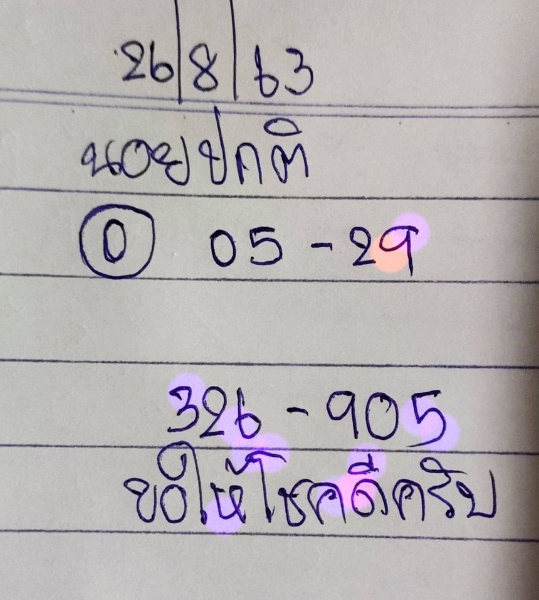 26/8/63
นอยปกติ
0 05-29
326-905
ขอให้โชคดีครับ